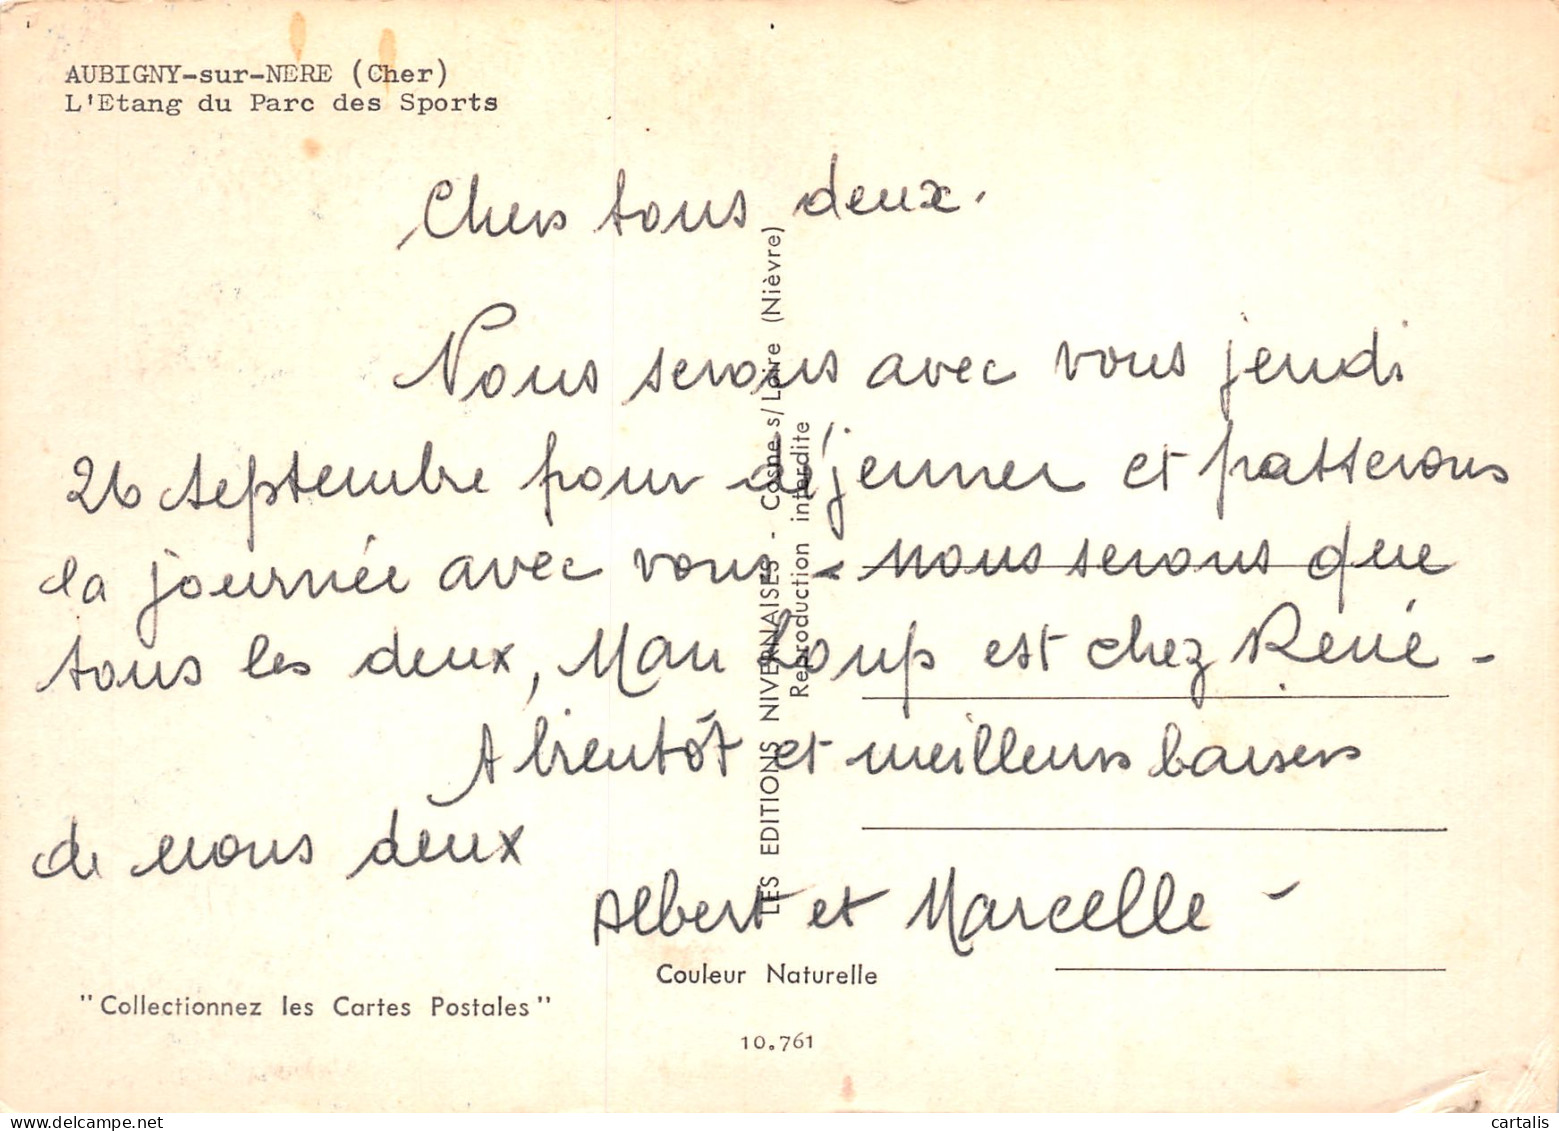 AUBIGNY-sur-NERE (Cher)
L'Etang du Parc des Sports
Chers tous deux.
Nous serons avec vous jeudi
26 septembre pour déjeuner et passerons
la journée avec vous - nous serons que
tous les deux, Mau Loup est chez René -
A bientôt et meilleurs baisers
de nous deux
Albert et Marcelle -
LES EDITIONS NIVERNAISES - Cosne s/Loire (Nièvre)
Reproduction interdite
Couleur Naturelle
"Collectionnez les Cartes Postales"
10.761
cartalis